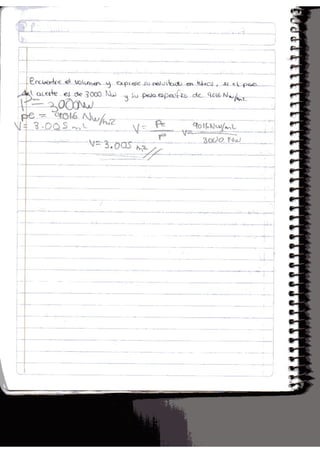 Encuentre el volumen y exprese su resultado en litros, si el peso
del aceite es de 3000 Nw y su peso especifico de 9016 Nw/m2.
P = 3000Nw
pe = 9016 Nw/m2
V= 3.005 m L
V= Pe / P
V= 9016 Nw/m2 / 3000 Nw
V= 3.005 m2